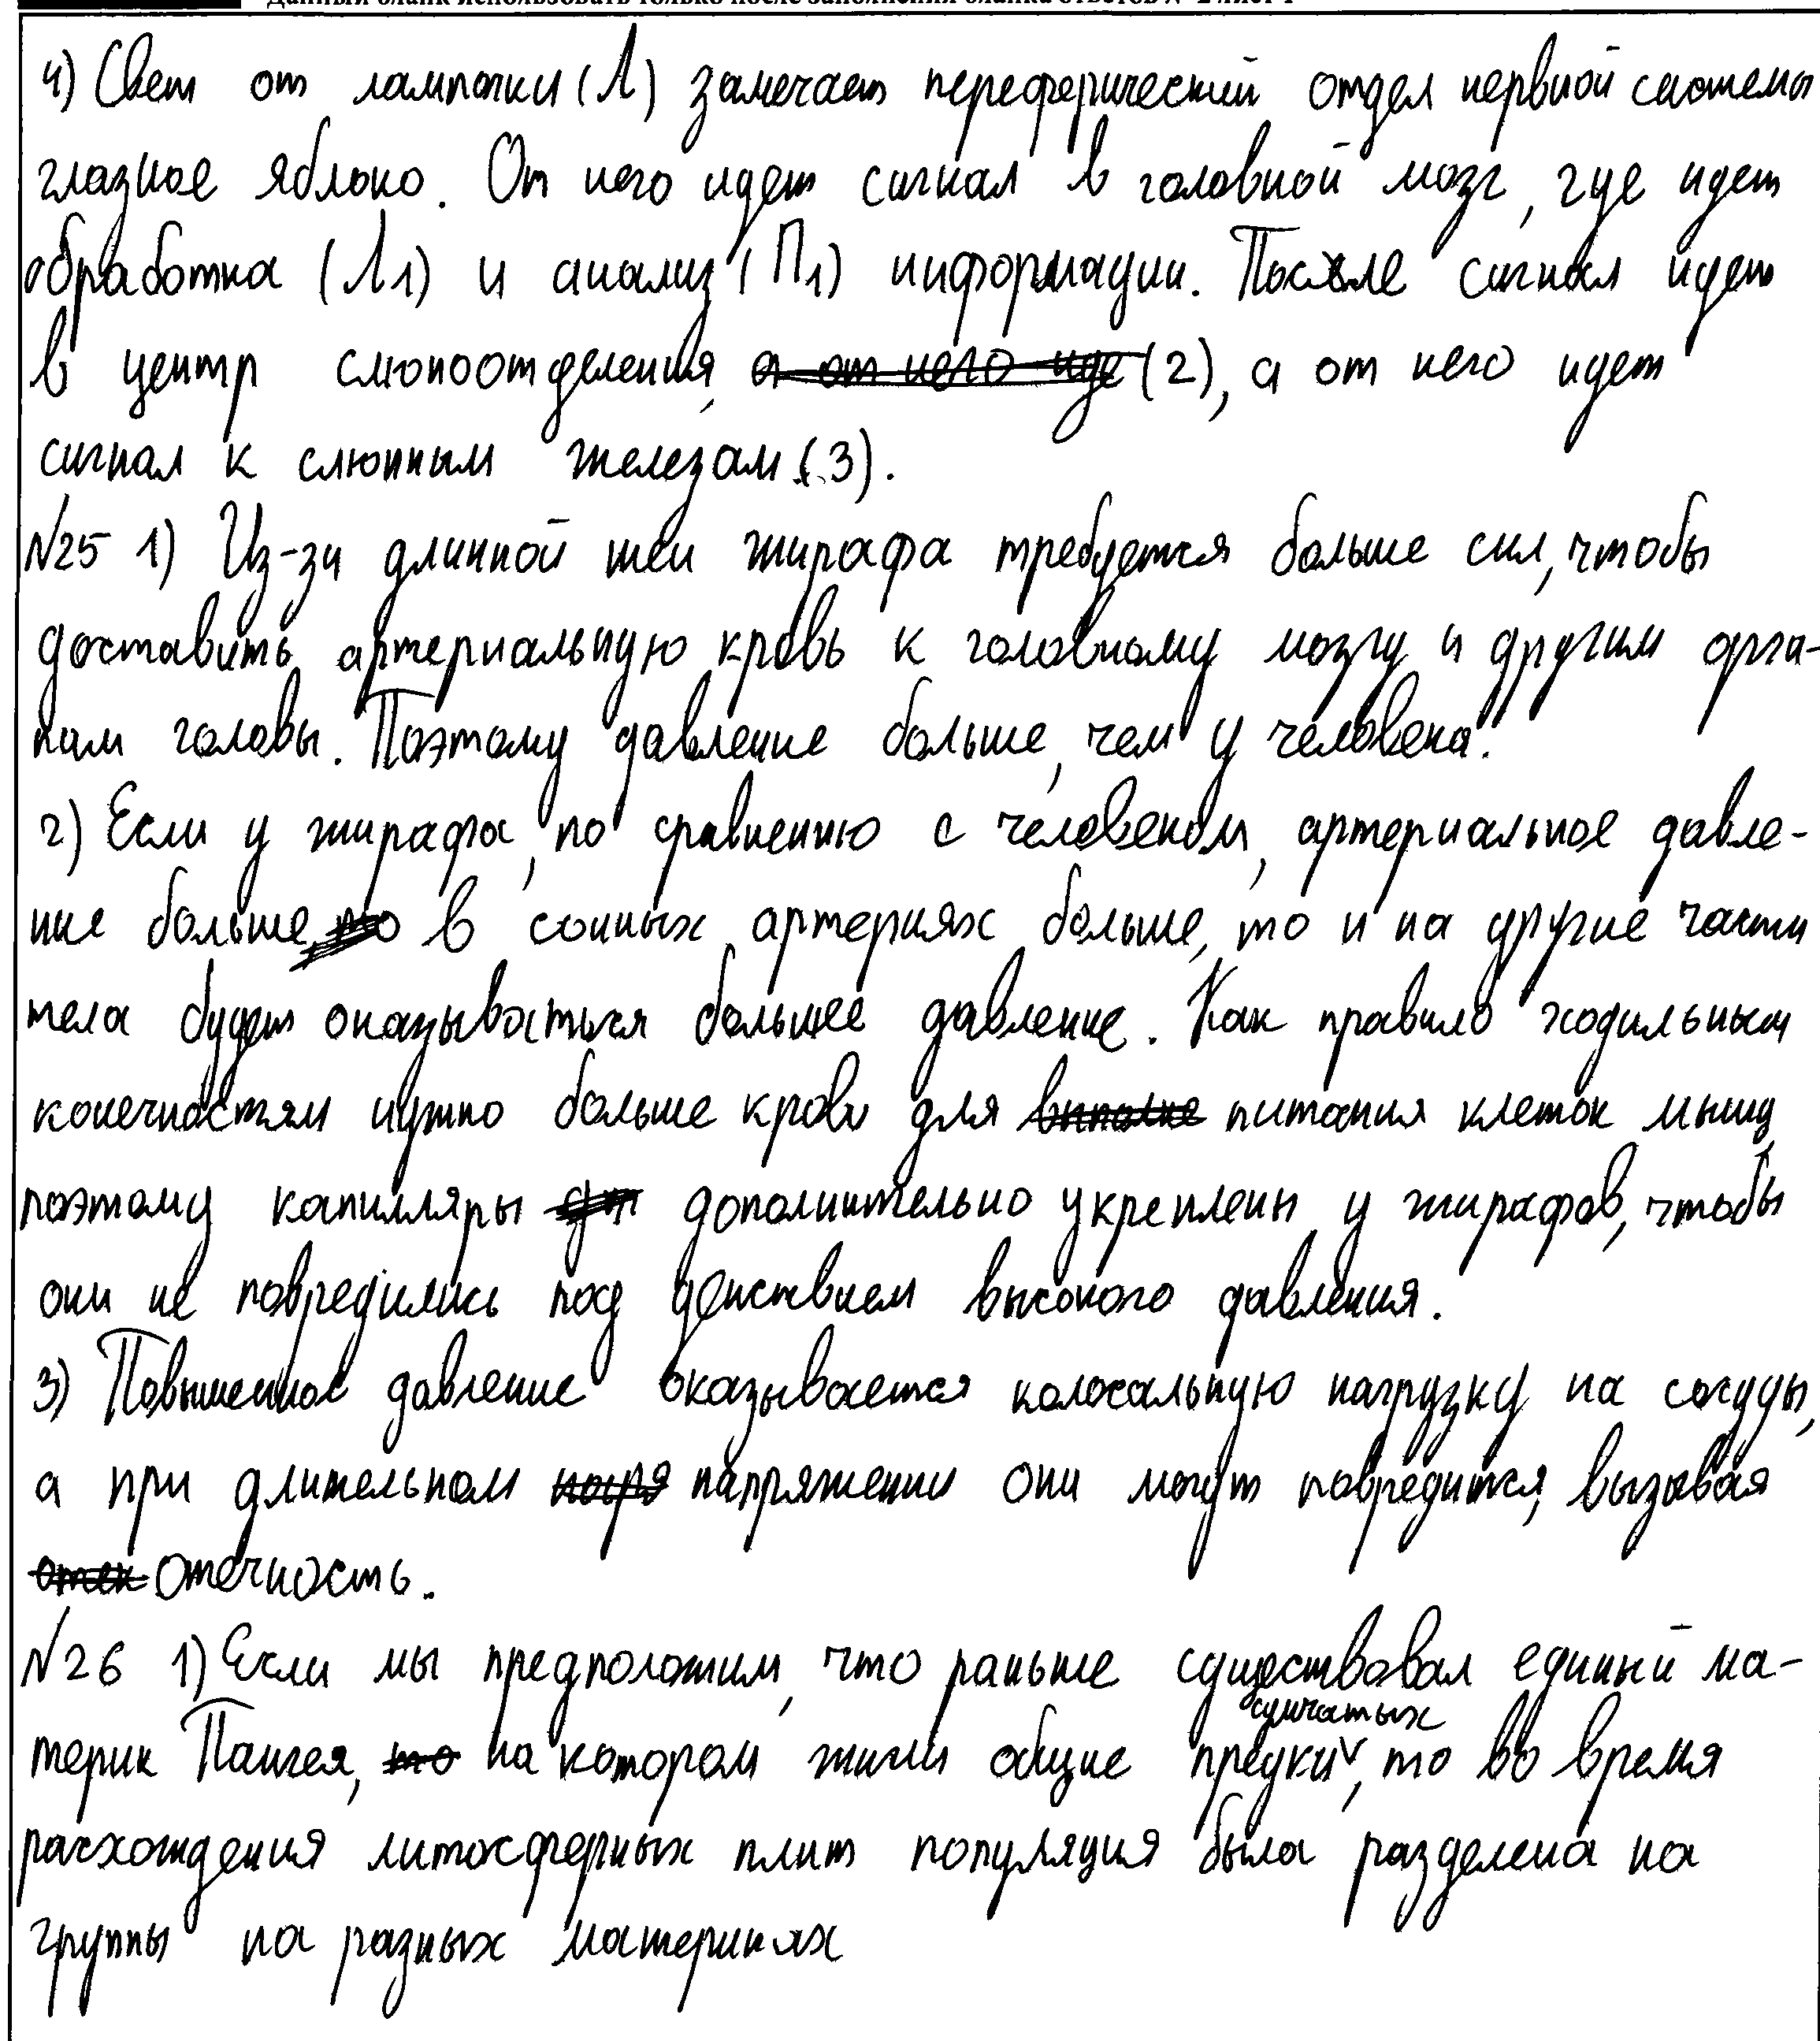 4) Свет от лампочки (Л) замечает переферический отдел нервной системы
глазное яблоко. От него идет сигнал в головной мозг, где идет
обработка (Л1) и анализ (П1) информации. После сигнал идет
в центр слюноотделения, а от него иде (2), а от него идет
сигнал к слюнным железам (3).
№25 1) Из-за длинной шеи жирафа требуется больше сил, чтобы
доставить артериальную кровь к головному мозгу и другим орга-
нам головы. Поэтому давление больше, чем у человека.
2) Если у жирафа, по сравнению с человеком, артериальное давле-
ние больше, то в сонных артериях больше, то и на другие части
тела будет оказываться большее давление. Как правило ходильным
конечностям нужно больше крови для питания клеток мышц,
поэтому капилляры дополнительно укреплены у жирафов, чтобы
они не повредились под действием высокого давления.
3) Повышенное давление оказывается колосальную нагрузку на сосуды,
а при длительном напряжении они могут повредится, вызывая
отек отечность.
№26 1) Если мы предположим, что раньше существовал единый ма-
сумчатых
терик Пангея, то на котором жили общие предки, то во время
расхождения литосферных плит популяция была разделена на
группы на разных материках